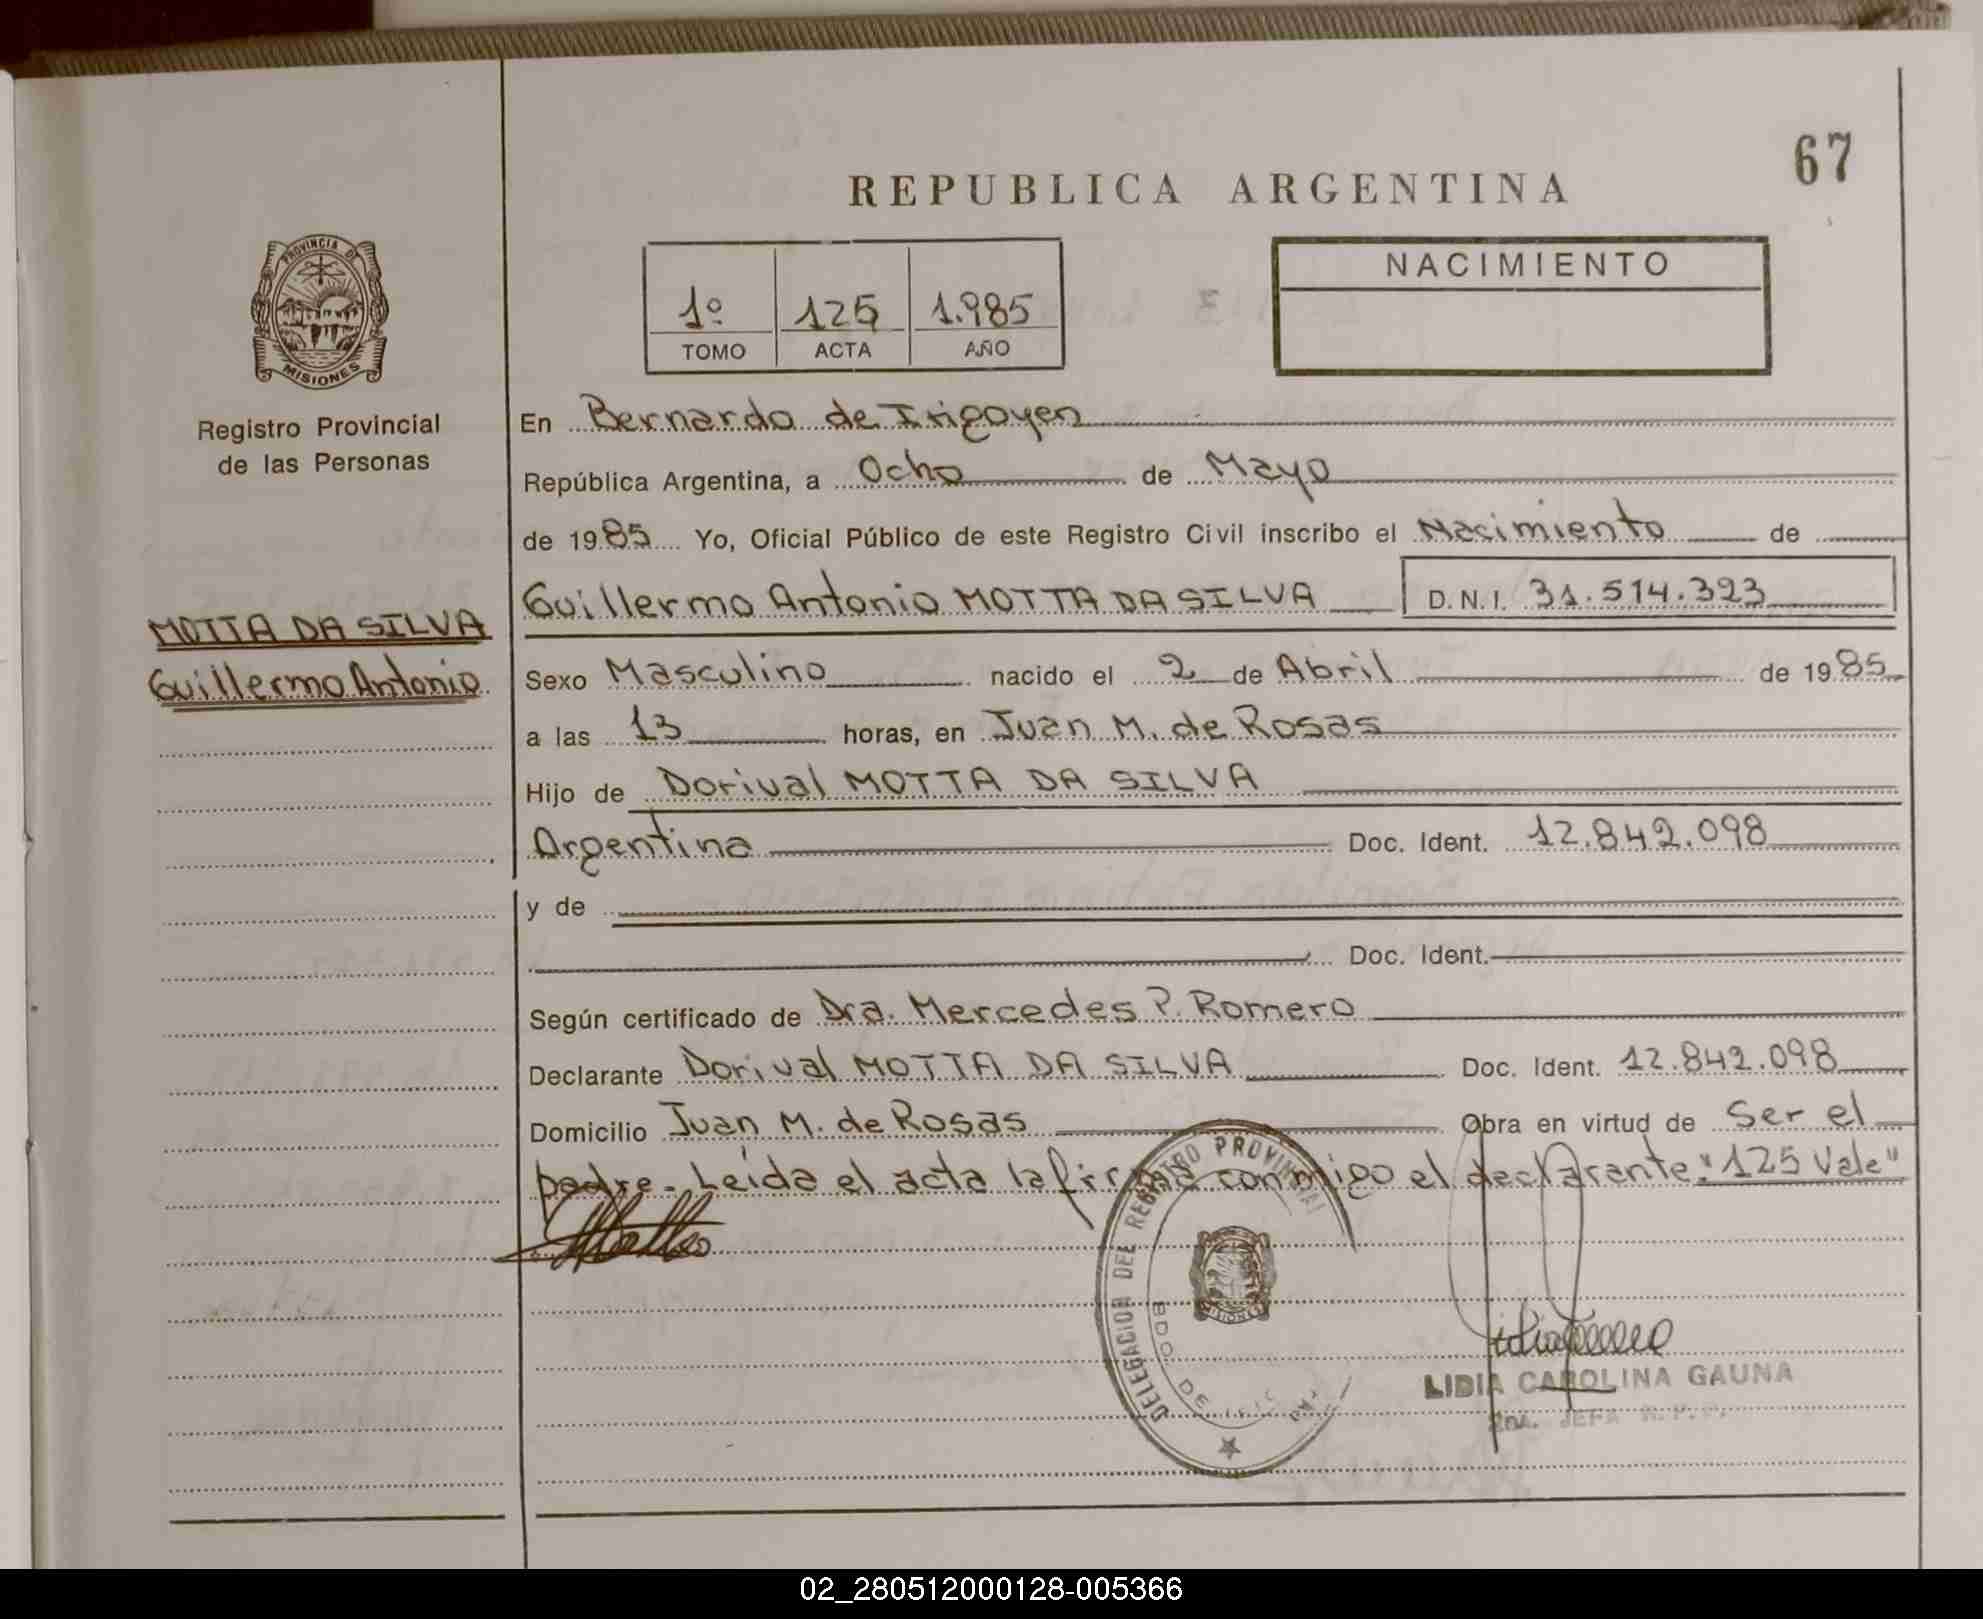 67
REPUBLICA ARGENTINA
PROVINCIA DE
MISIONES
Registro Provincial
de las Personas
1º 125 1.985
TOMO ACTA AÑO
NACIMIENTO
En Bernardo de Irigoyen
República Argentina, a Ocho de Mayo
de 1985 Yo, Oficial Público de este Registro Civil inscribo el Nacimiento de
Guillermo Antonio MOTTA DA SILVA D.N.I. 31.514.323
MOTTA DA SILVA
Guillermo Antonio
Sexo Masculino nacido el 2 de Abril de 1985
a las 13 horas, en Juan M. de Rosas
Hijo de Dorival MOTTA DA SILVA
Argentina Doc. Ident. 12.842.098
y de
Doc. Ident.
Según certificado de Dra. Mercedes P. Romero
Declarante Dorival MOTTA DA SILVA Doc. Ident. 12.842.098
Domicilio Juan M. de Rosas Obra en virtud de Ser el
padre. Leída el acta la firma conmigo el declarante. "125 Vale"
DELEGACION DEL REGISTRO PROVINCIAL
BDO. DE
MISIONES
LIDIA CAROLINA GAUNA
2DA. JEFA R.P.P.
02_280512000128-005366